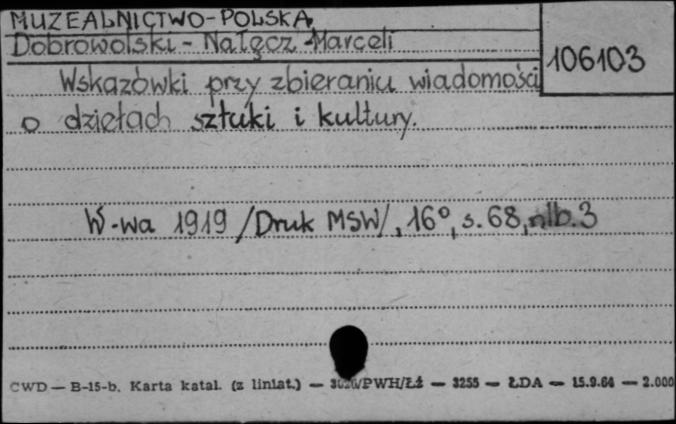 MUZEALNICTWO-POLSKA
Dobrowolski - Nałęcz Marceli
106103
Wskazówki przy zbieraniu wiadomości
o dziełach sztuki i kultury.
W-wa 1919 /Druk MSW/, 16°, s. 68, nlb. 3
CWD — B-15-b. Karta katal. (z liniat.) — PWH/Łź — 3255 — ŁDA — 15.9.64 — 2.000